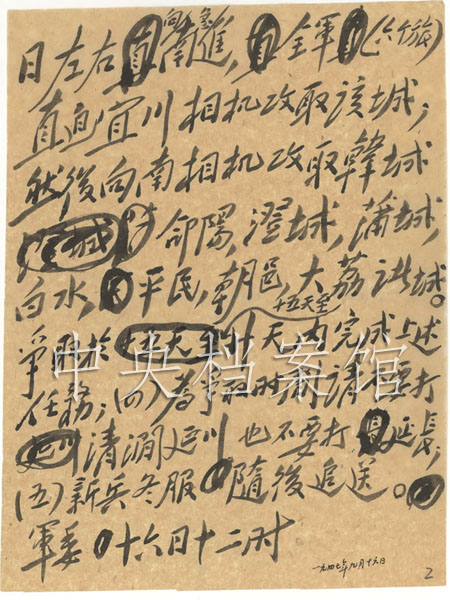 日左右向南急進，全軍(六个旅)
直迫宜川相机攻取該城；
然後向南相机攻取韓城
郃陽，澄城，蒲城，
白水，平民，朝邑，大荔諸城。
十五天至
爭取於廿天内完成上述
中央档案馆
任務；(四)為爭取时間請不要打
清澗延川也不要打延長；
(五)新兵冬服隨後追送。
軍委十六日十二时
一九四七年九月十六日
2